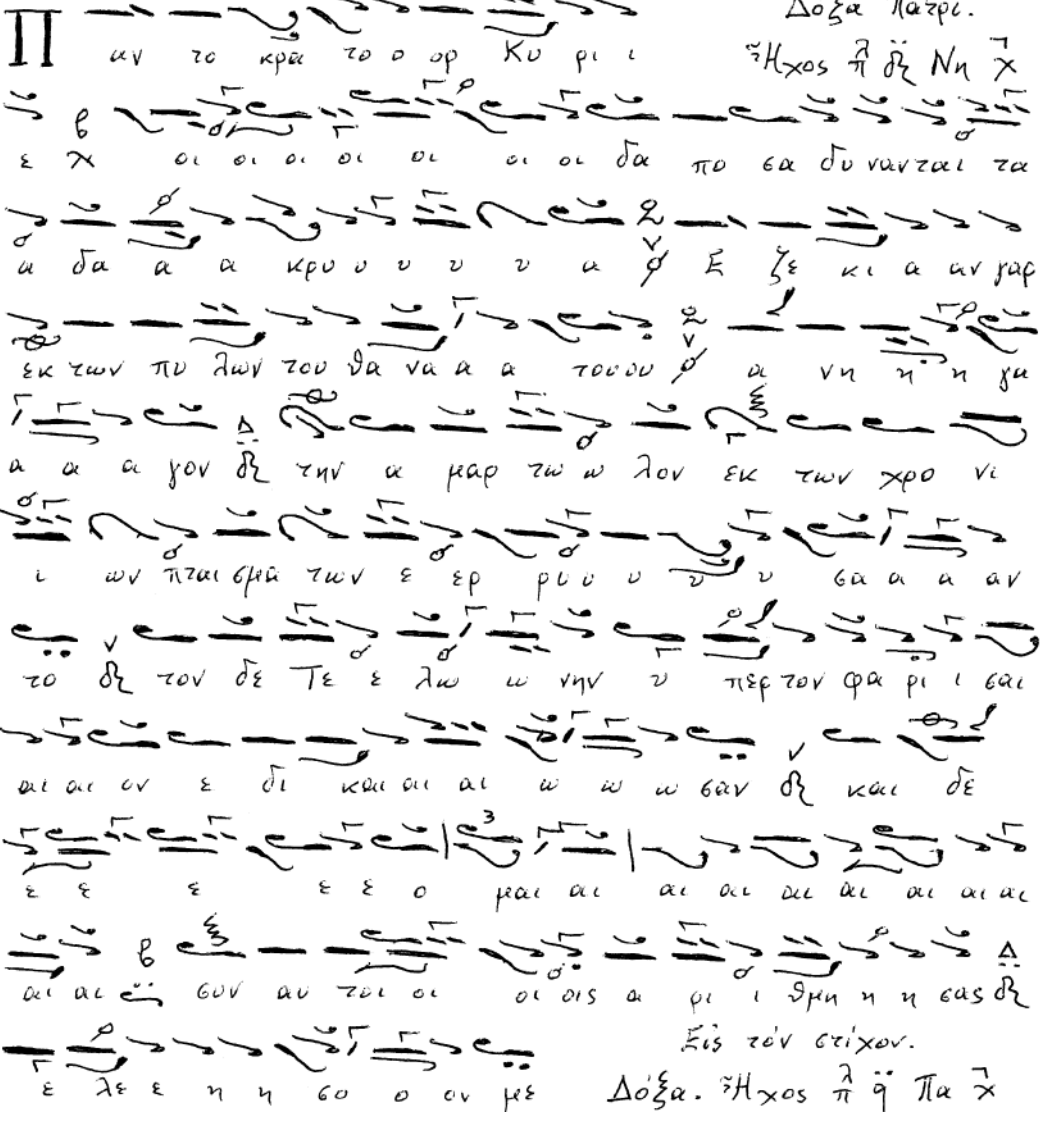 Δόξα Πατρί.
Π αν το κρα το ο ορ Κυ ρι ι Ἦχος λ π Νη χ
ε χ οι οι οι οι οι οι οι δα πο σα δυ ναν ται τα
α δα α α κρυ υ υ υ υ α Ε ζε κι α αν γαρ
εκ των πυ λων του θα να α α τουου α νη η η γα
α α α γον την α μαρ τω ω λον εκ των χρο νι
ι ων πται σμα των ε ερ ρυ υ υ υ υ σα α α αν
το τον δε Τε ε λω ω νην υ περ τον φα ρι ι σαι
αι αι ον ε δι και αι αι ω ω ω σαν και δε
ε ε ε ε ε ο μαι αι αι αι αι αι αι αι αι
αι αι συν αυ τοι οι οι οις α ρι ι θμη η η σας
Εἰς τόν στίχον.
ε λε ε η η σο ο ον με Δόξα. Ἦχος λ π q Πα χ